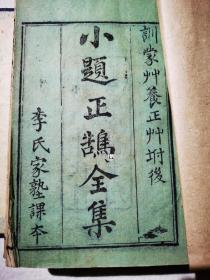 訓蒙艸養正艸坿後
小題正鵠全集
李氏家塾課本